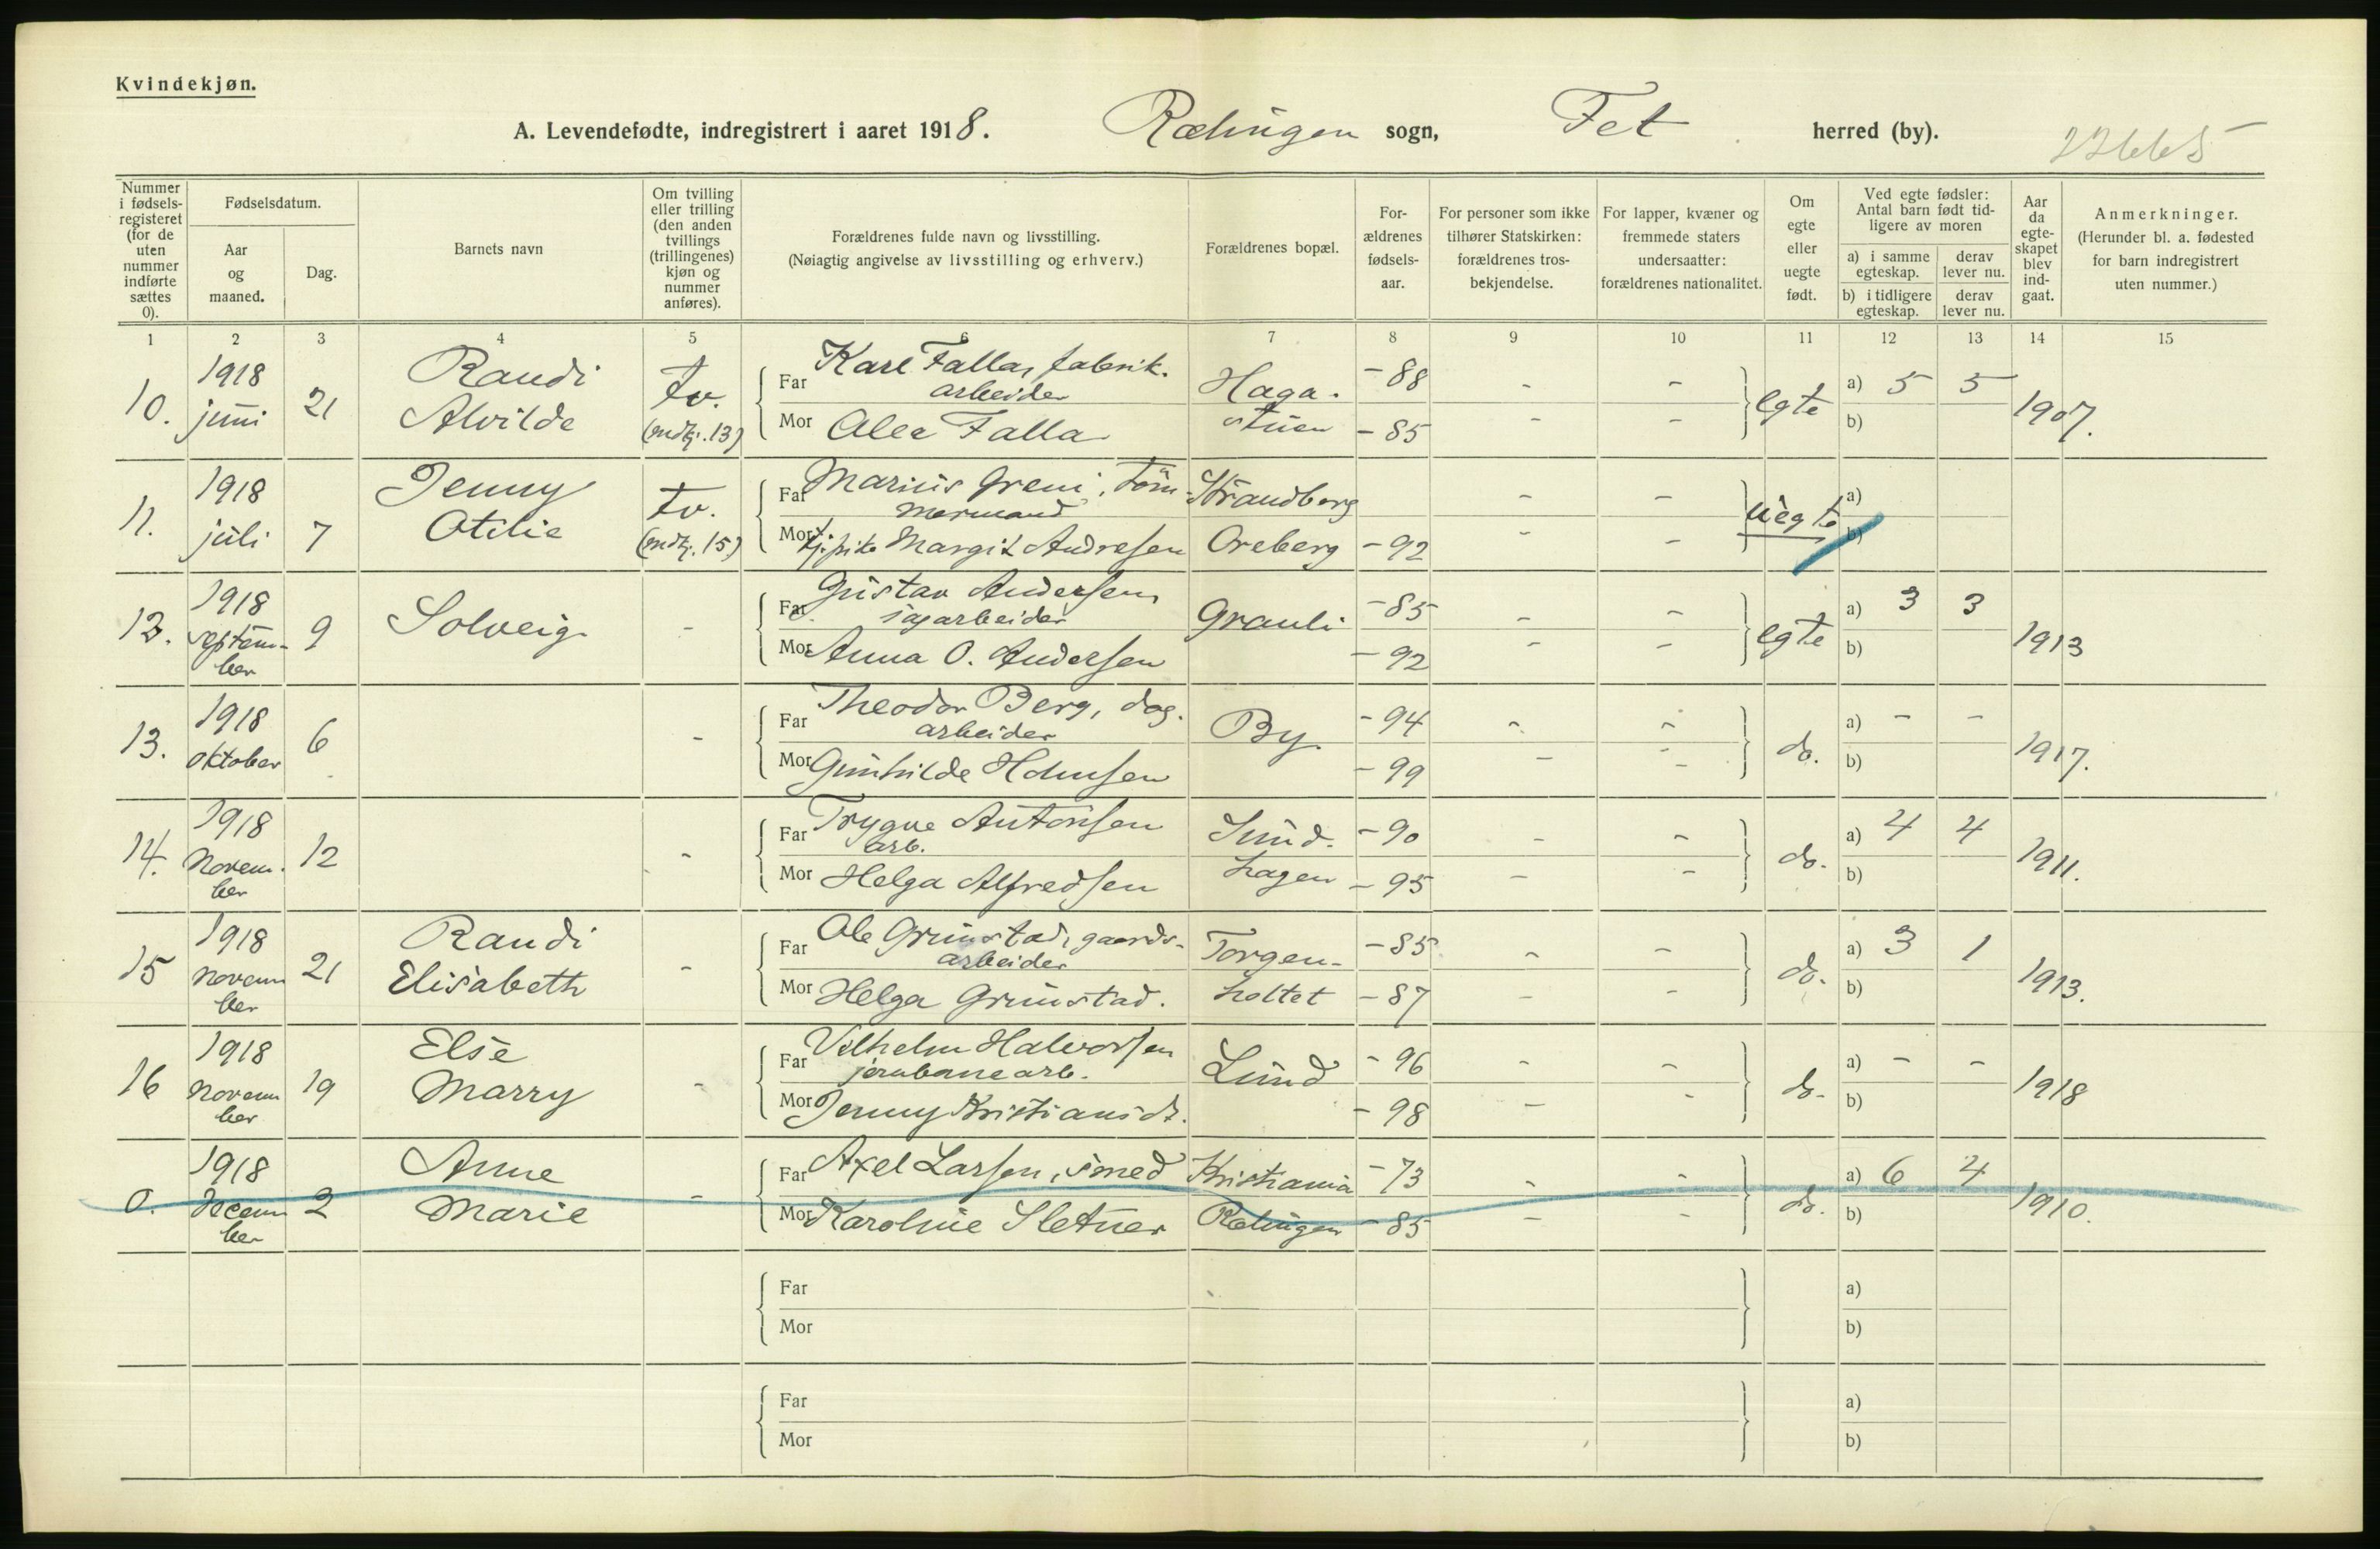 Kvindekjøn.
A. Levendefødte, indregistrert i aaret 1918. Rælingen sogn, Fet herred (by). 22665
Nummer i fødsels-registeret (for de uten nummer indførte sættes 0).
Fødselsdatum.
Aar og maaned.
Dag.
Barnets navn
Om tvilling eller trilling (den anden tvillings (trillingenes) kjøn og nummer anføres).
Forældrenes fulde navn og livsstilling.
(Nøiagtig angivelse av livsstilling og erhverv.)
Forældrenes bopæl.
For-ældrenes fødsels-aar.
For personer som ikke tilhører Statskirken: forældrenes tros-bekjendelse.
For lapper, kvæner og fremmede staters undersaatter: forældrenes nationalitet.
Om egte eller uegte født.
Ved egte fødsler: Antal barn født tid-ligere av moren
a) i samme egteskap.
derav lever nu.
b) i tidligere egteskap.
derav lever nu.
Aar da egte-skapet blev ind-gaat.
Anmerkninger.
(Herunder bl. a. fødested for barn indregistrert uten nummer.)
1 2 3 4 5 6 7 8 9 10 11 12 13 14 15
10. 1918 juni 21 Randi Alvilde tv. (mdkj. 13)
Far Karl Falla, fabrik. arbeider Haga. -88 - -
Mor Alee Falla stuen -85 - -
egte a) 5 5 b) 1907.
11. 1918 juli 7 Jenny Otilie tv. (mdkj. 15)
Far Marius Greni, töm mermand Strandberg - -
Mor tj. pike Margit Andresen Oreberg -92 - -
uegte a) b)
12. 1918 septem-ber 9 Solveig -
Far Gustav Andersen sagarbeider Grauli -85 - -
Mor Anna O. Andersen -92 - -
egte a) 3 3 b) 1913
13. 1918 oktober 6 -
Far Theodor Berg, dag. arbeider By -94 - -
Mor Gunhilde Holmsen -99 - -
do. a) - - b) 1917.
14. 1918 Novem.ber 12 -
Far Trygve Antonsen arb. Sund. -90 - -
Mor Helga Alfredsen hagen -95 - -
do. a) 4 4 b) 1911.
15 1918 novem ber 21 Randi Elisabeth -
Far Ole Grimstad, gaards-arbeider Torgen- -85 - -
Mor Helga Grimstad. holtet -87 - -
do. a) 3 1 b) 1913.
16 1918 novem ber 19 Else Marry -
Far Vilhelm Halvorsen jernbanearb. Lund -96 - -
Mor Jenny Kristiansdt. -98 - -
do. a) - - b) 1918
0. 1918 Decem ber 2 Anne Marie -
Far Axel Larsen, smed Kristiania -73 - -
Mor Karoline Sletner Rælingen -85 - -
do. a) 6 4 b) 1910.
Far a)
Mor b)
Far a)
Mor b)